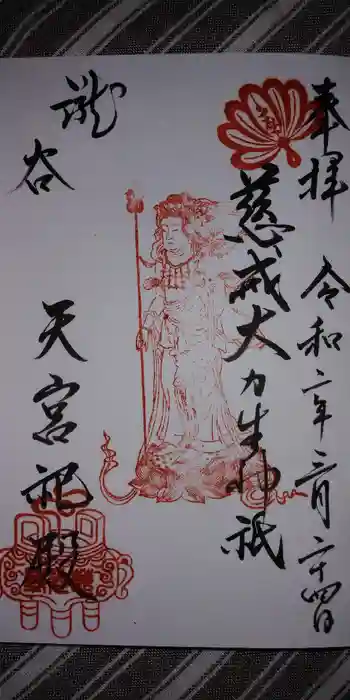 奉拝 令和二年三月二十四日
慈戒大力生神祇
瀧谷
天宮祀殿